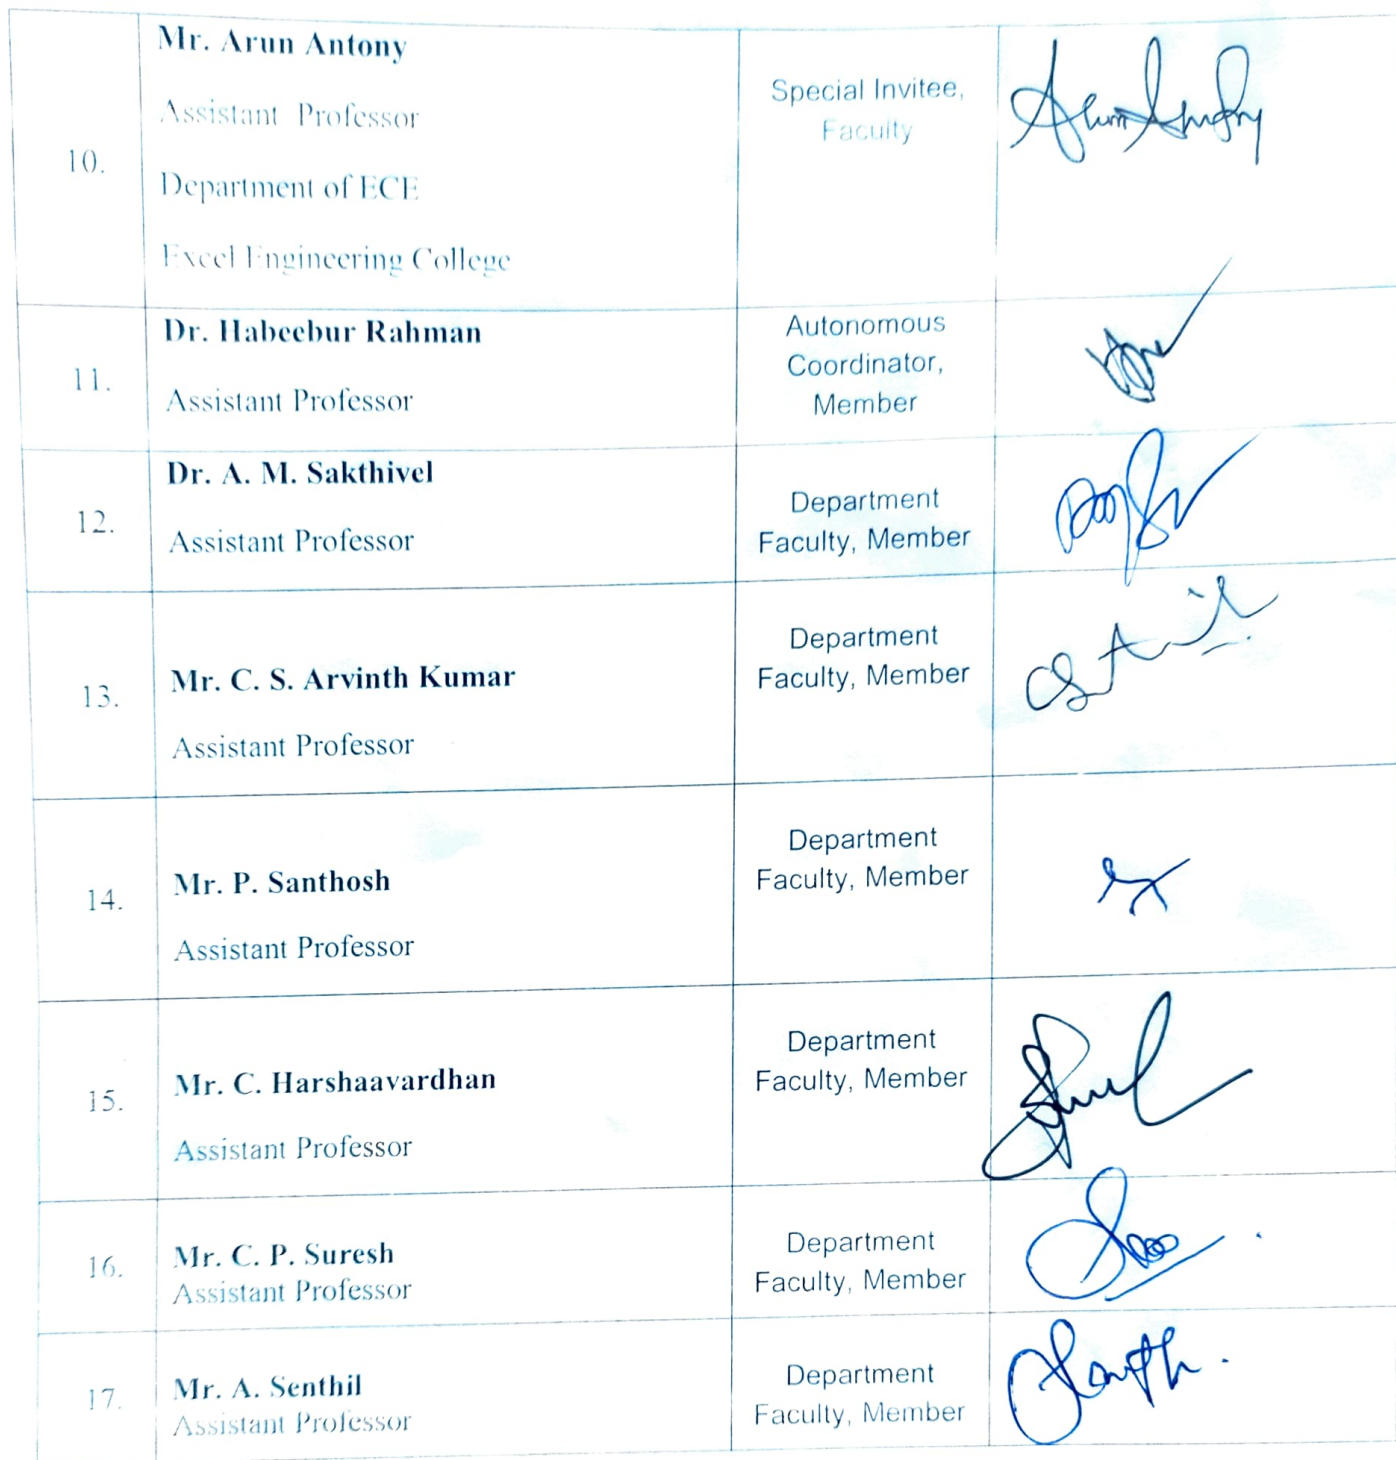 10.
Mr. Arun Antony
Assistant Professor
Department of ECE
Excel Engineering College
Special Invitee,
Faculty
11.
Dr. Habeebur Rahman
Assistant Professor
Autonomous
Coordinator,
Member
12.
Dr. A. M. Sakthivel
Assistant Professor
Department
Faculty, Member
13.
Mr. C. S. Arvinth Kumar
Assistant Professor
Department
Faculty, Member
14.
Mr. P. Santhosh
Assistant Professor
Department
Faculty, Member
15.
Mr. C. Harshaavardhan
Assistant Professor
Department
Faculty, Member
16.
Mr. C. P. Suresh
Assistant Professor
Department
Faculty, Member
17.
Mr. A. Senthil
Assistant Professor
Department
Faculty, Member